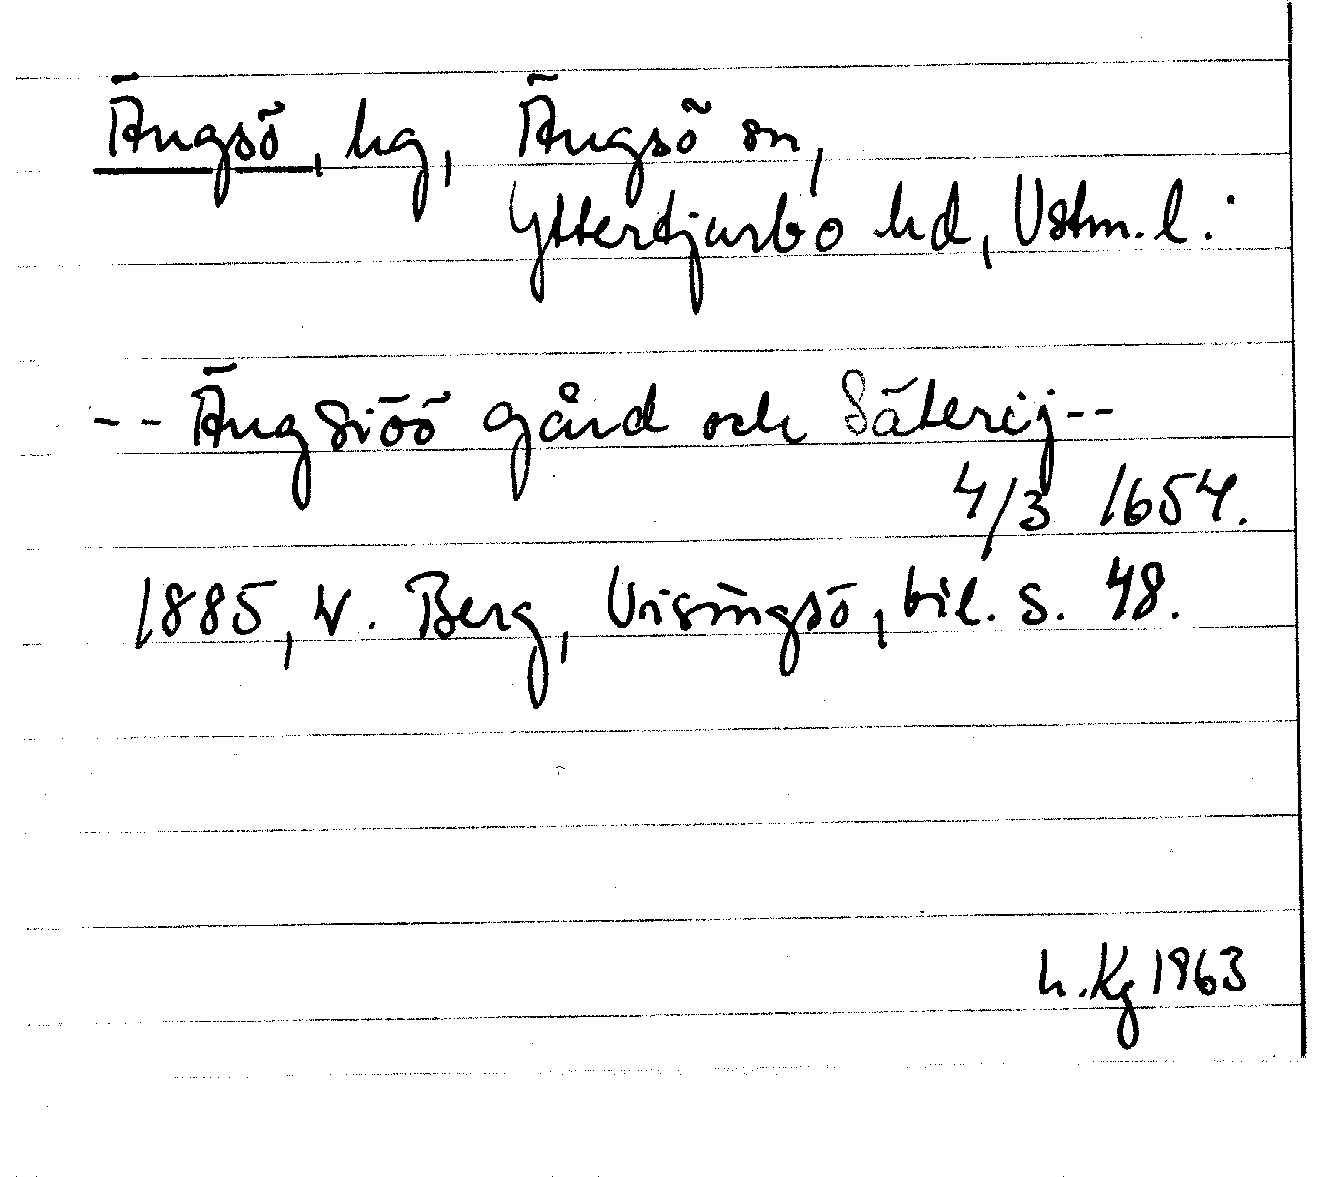 Ängsö, hg, Ängsö sn,
Ytterdjurbo hd, Vstm. l.:
-- Ängsiöö gård och Säterij--
4/3 1654.
1885, W. Berg, Visingsö, bil. s. 48.
h. Kg 1963